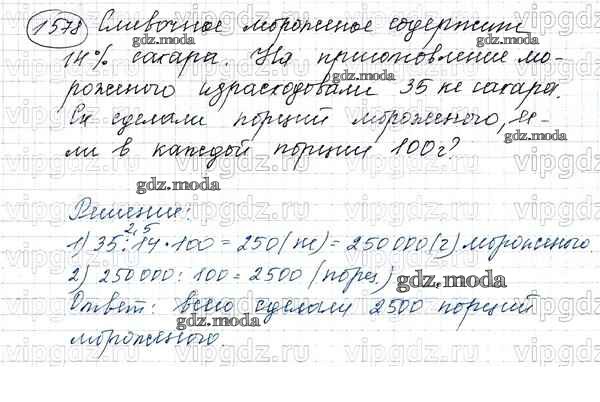 1578 Сливочное мороженое содержит
14% сахара. На приготовление мо-
роженого израсходовали 35 кг сахара.
Ск сделали порций мороженого, ес-
ли в каждой порции 100г?
gdz.moda
Решение:
2,5
1) 35:14·100 = 250(кг) = 250000(г) мороженого.
2) 250000:100 = 2500 (порц.)
Ответ: всего сделали 2500 порций
мороженого.